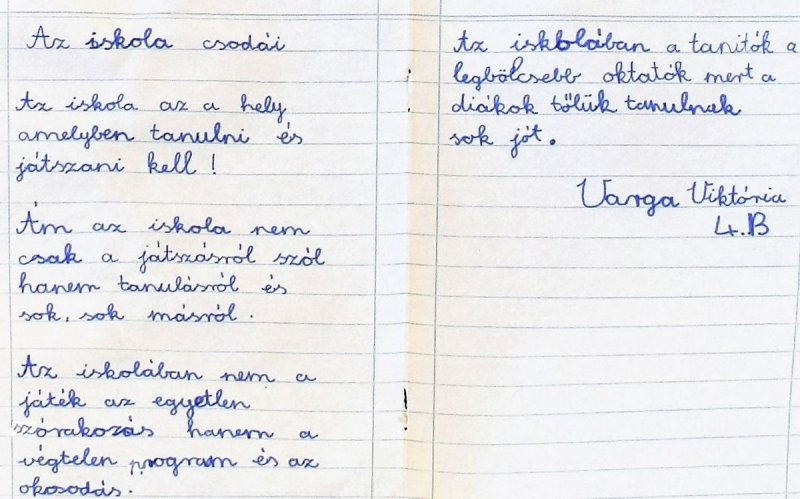 Az iskola csodái
Az iskola az a hely
amelyben tanulni és
játszani kell!
Ám az iskola nem
csak a játszásról szól
hanem tanulásról és
sok, sok másról.
Az iskolában nem a
játék az egyetlen
szórakozás hanem a
végtelen program és az
okosodás.
Az iskolában a tanitók a
legbölcsebb oktatók mert a
diákok tőlük tanulnak
sok jót.
Varga Viktória
4.B